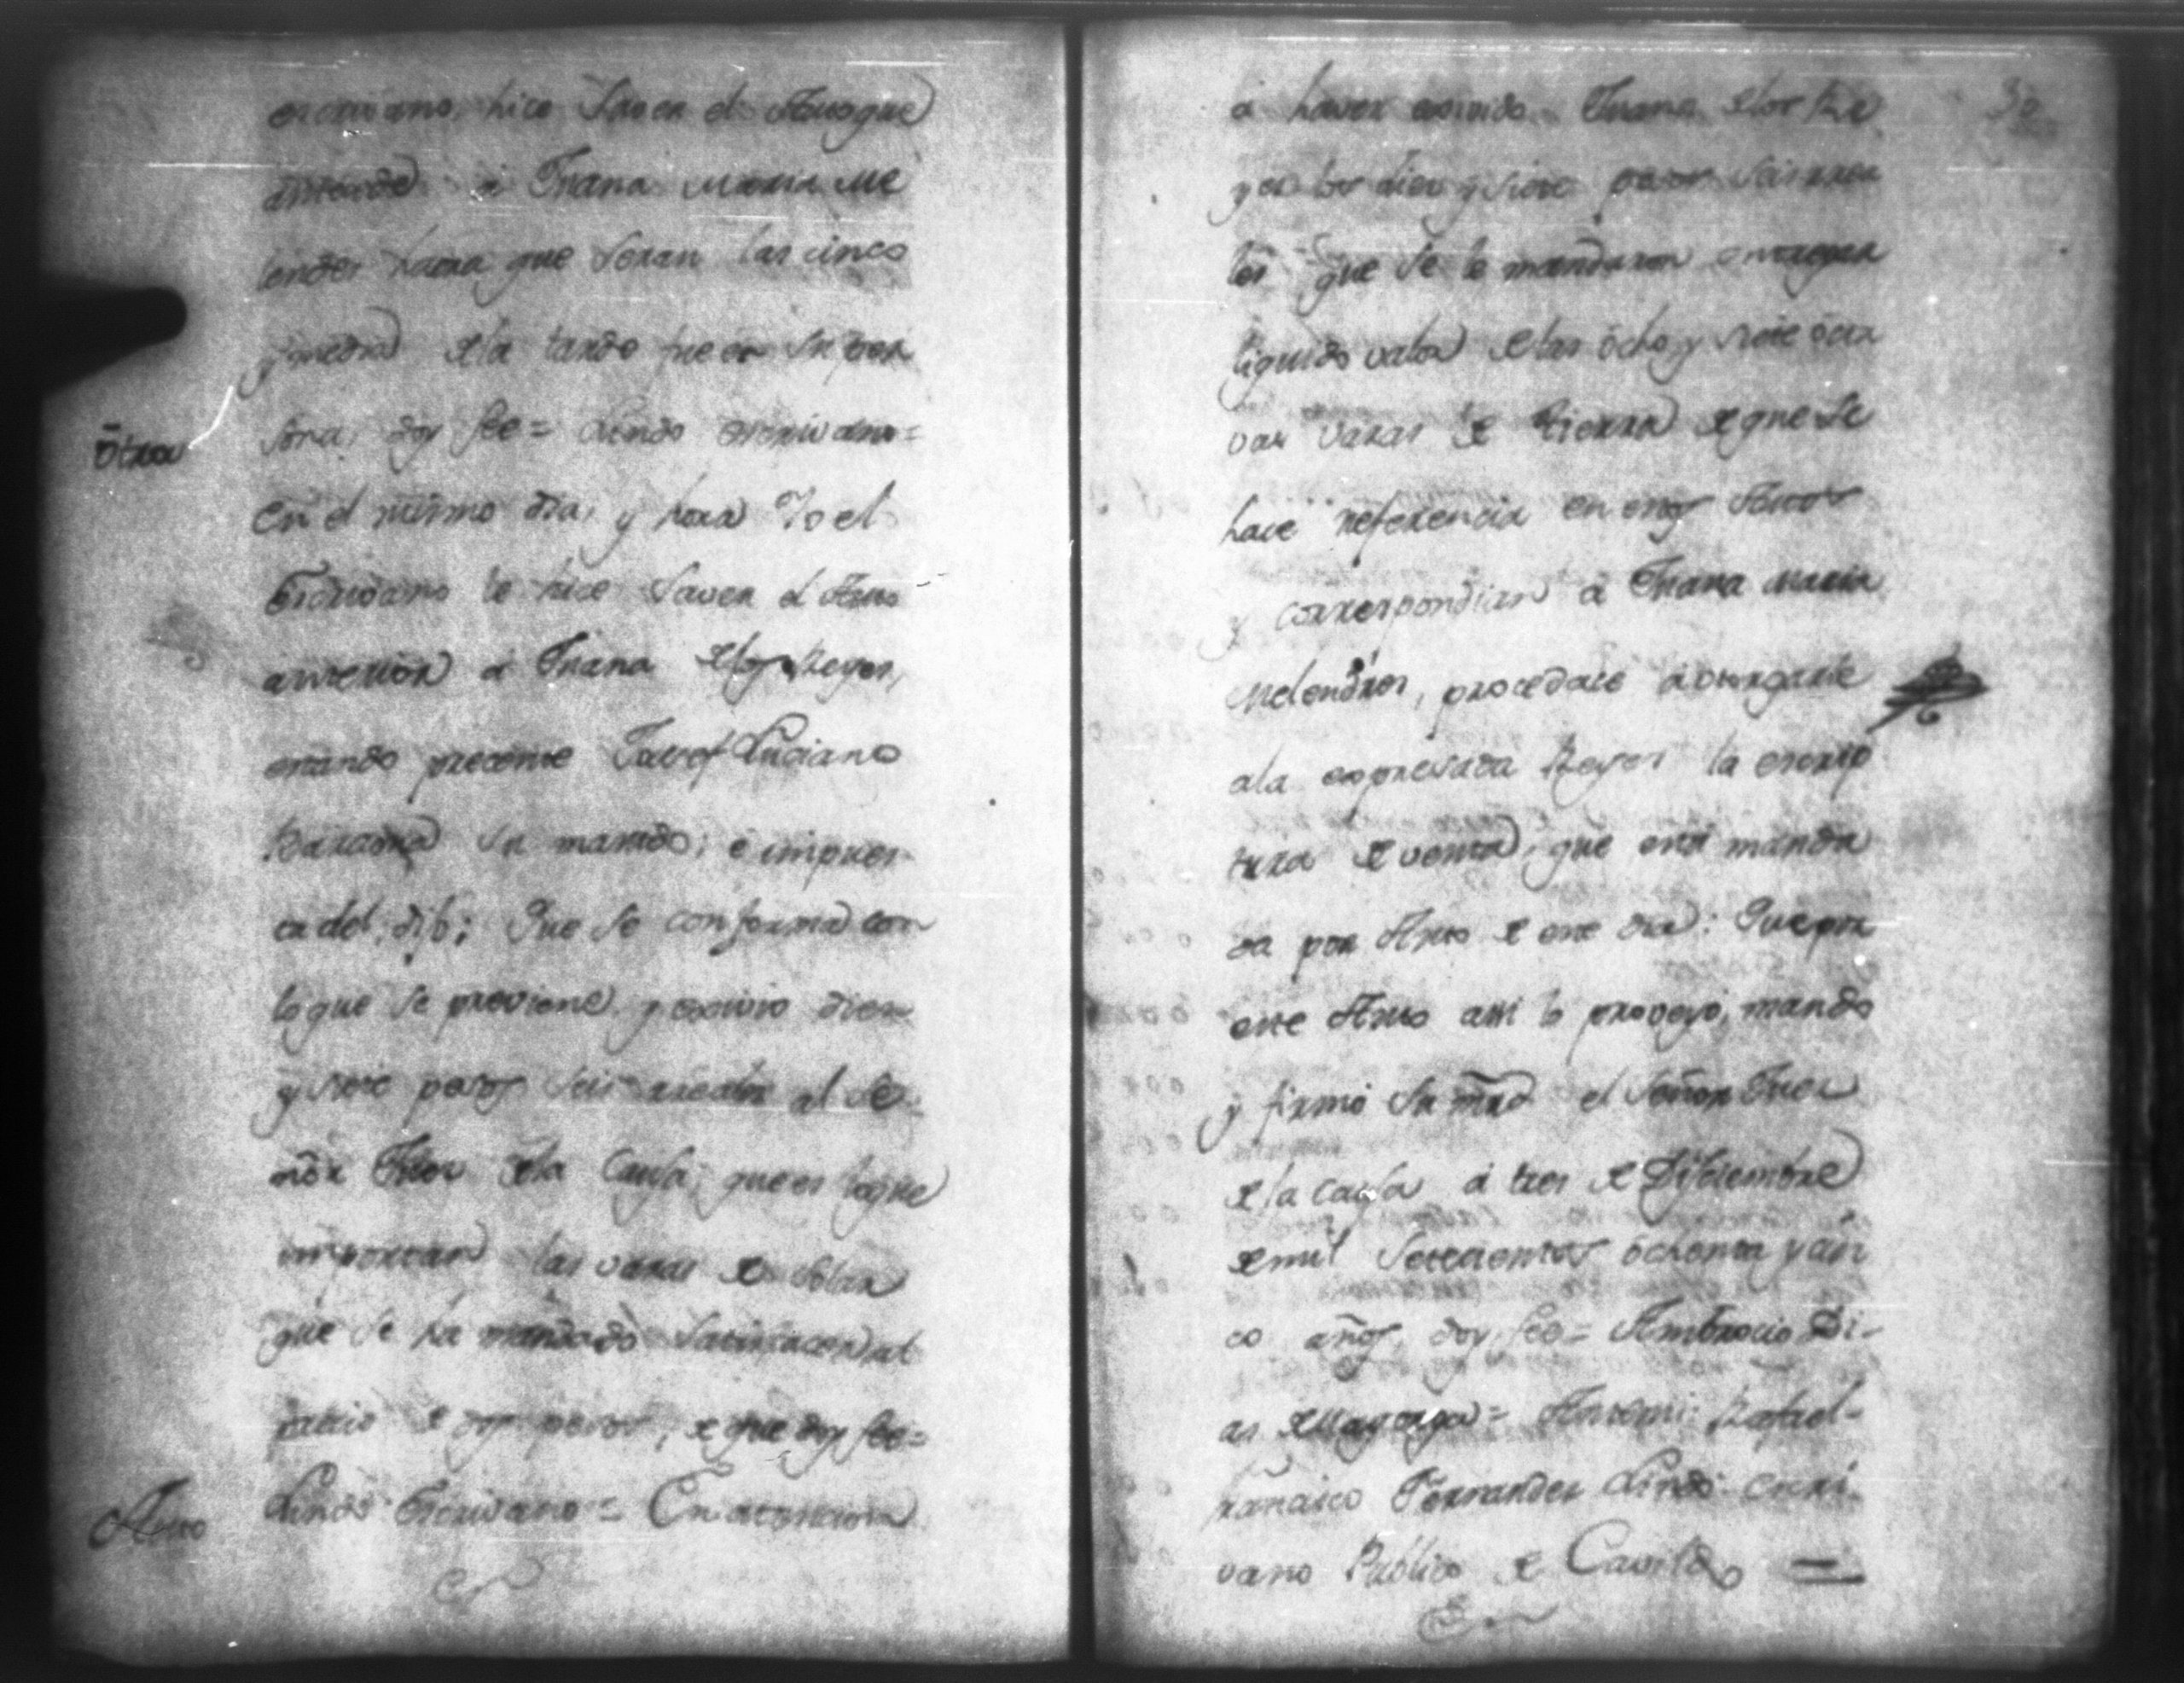 escrivano, hice saver el Auto que
antecede à Juana Maria Me
lendes haora que seran las cinco
y media de la tarde fue en su per
Otra
sona, doy fee = Lindo escrivano =
En el mismo dia, y hora Yo el
Escrivano le hice saver el Auto
anterior à Juana de los Reyes,
estando precente Joseph Luciano
Baraona su marido; è impues
ta del, dijo; Que se conforma con
lo que se previene, y exivio dies
y siete pesos seis reales al Se
ñor Jues de la Causa, que es lo que
importan las varas de solar
que se ha mandado satisfacer al
precio de dos pesos, de que doy fee =
Auto
Lindo Escrivano = En atencion
En
à haver exivido Juana de los Re
30
yes los dies y siete pesos seis rea
les que se le mandaron entregar
liquido valor de las ocho y siete octa
vas varas de tierra de que se
hace referencia en estos Autos
y correspondian à Juana Maria
Melendres, procedace à otorgarle
a la expresada Reyes la escrip
tura de venta, que està manda
da por Auto de este dia: Que por
este Auto assi lo proveyò, mandò
y firmò su mrd el Señor Jues
de la Causa à tres de Diciembre
de mil setecientos ochenta y cin
co años, doy fee = Ambrocio Di-
as de Mayorga = Antemi: Rafael
Francisco Fernandes Lindo Escri
vano Publico de Cavildo =